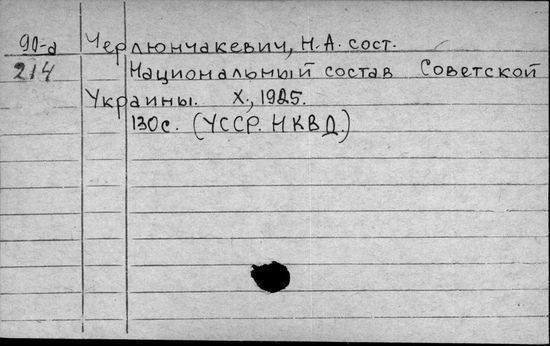 90-а Черлюнчакевич, Н.А. сост.
214 Национальный состав Советской
Украины. Х., 1925.
130с. (УССР. НКВД.)